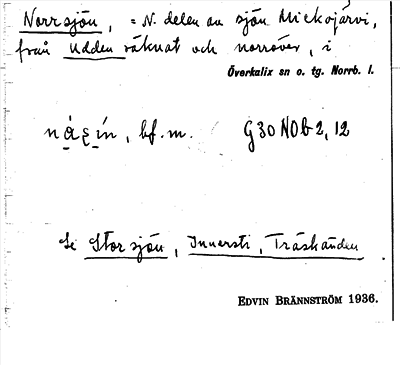 Norrsjön, = N. delen av sjön Mickojärvi,
från Udden räknat och norröver, i
Överkalix sn o. tg. Norrb. l.
bf. m. G30 NOb 2, 12
Se Storsjön, Innersti, Träskänden
EDVIN BRÄNNSTRÖM 1936.